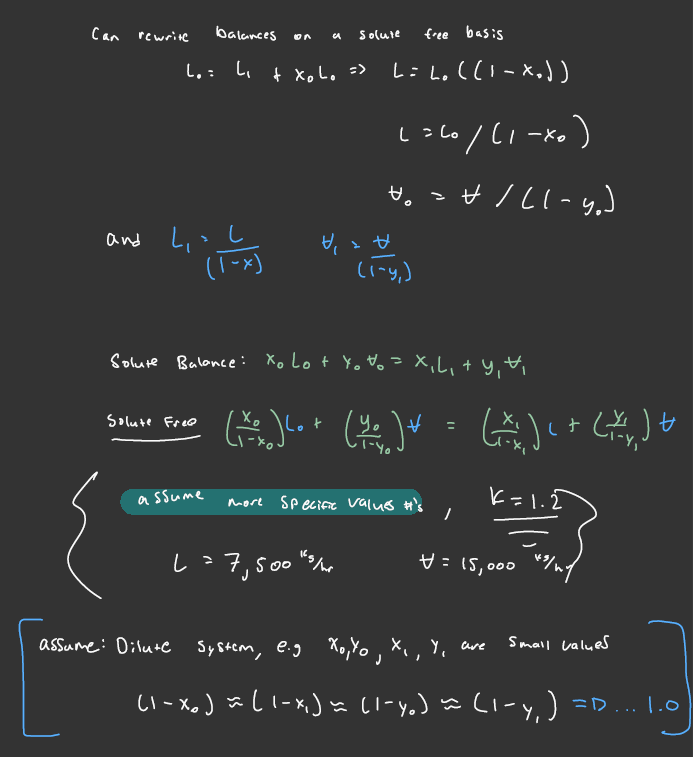 Can rewrite balances on a solute free basis
L₀ = L₁ + x₀L₀ => L = L₀((1-x₀))
L = L₀/(1-x₀)
V₀ = V/(1-y₀)
and L₁ = L/(1-x) V₁ = V/(1-y₁)
Solute Balance: x₀L₀ + y₀V₀ = x₁L₁ + y₁V₁
Solute Free (x₀/1-x₀)L₀ + (y₀/1-y₀)V = (x₁/1-x₁)L + (y₁/1-y₁)V
assume more specific values #'s, K = 1.2
L = 7,500 kg/hr V = 15,000 kg/hr
assume: Dilute system, e.g x₀, y₀, x₁, y₁ are small values
(1-x₀) ≈ (1-x₁) ≈ (1-y₀) ≈ (1-y₁) => ... 1.0